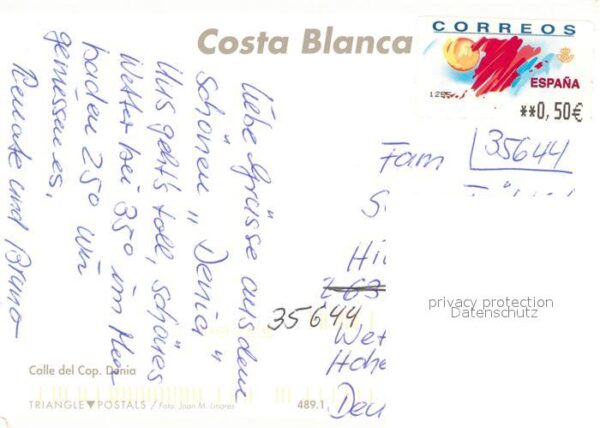 Costa Blanca
CORREOS
ESPAÑA
1295
**0,50€
Liebe Grüsse aus dem
schönen „Denia"
Uns geht's toll, schönes
Wetter bei 35° im Meer
baden 25° wir
geniessen es.
Renate und Bruno
Fam
35644
S
Hi
35644
Wet
Hohe
Deu
privacy protection
Datenschutz
Calle del Cop. Denia
TRIANGLE▼POSTALS / Foto: Joan M. Linares
489.1